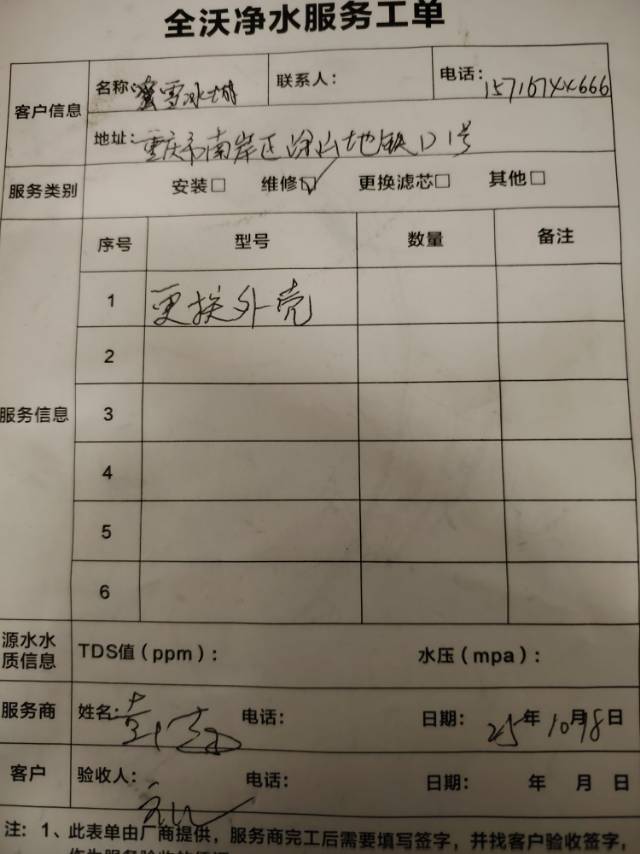 全沃净水服务工单
客户信息
名称: 蜜雪冰城
联系人:
电话:
地址: 重庆市南岸区涂山地铁口1号
服务类别
安装□ 维修☑ 更换滤芯□ 其他□
服务信息
序号 型号 数量 备注
1 更换外壳
2
3
4
5
6
源水水质信息
TDS值(ppm): 水压(mpa):
服务商
姓名: 电话: 日期: 25年10月8日
客户
验收人: 电话: 日期: 年 月 日
注: 1、此表单由厂商提供, 服务商完工后需要填写签字, 并找客户验收签字,